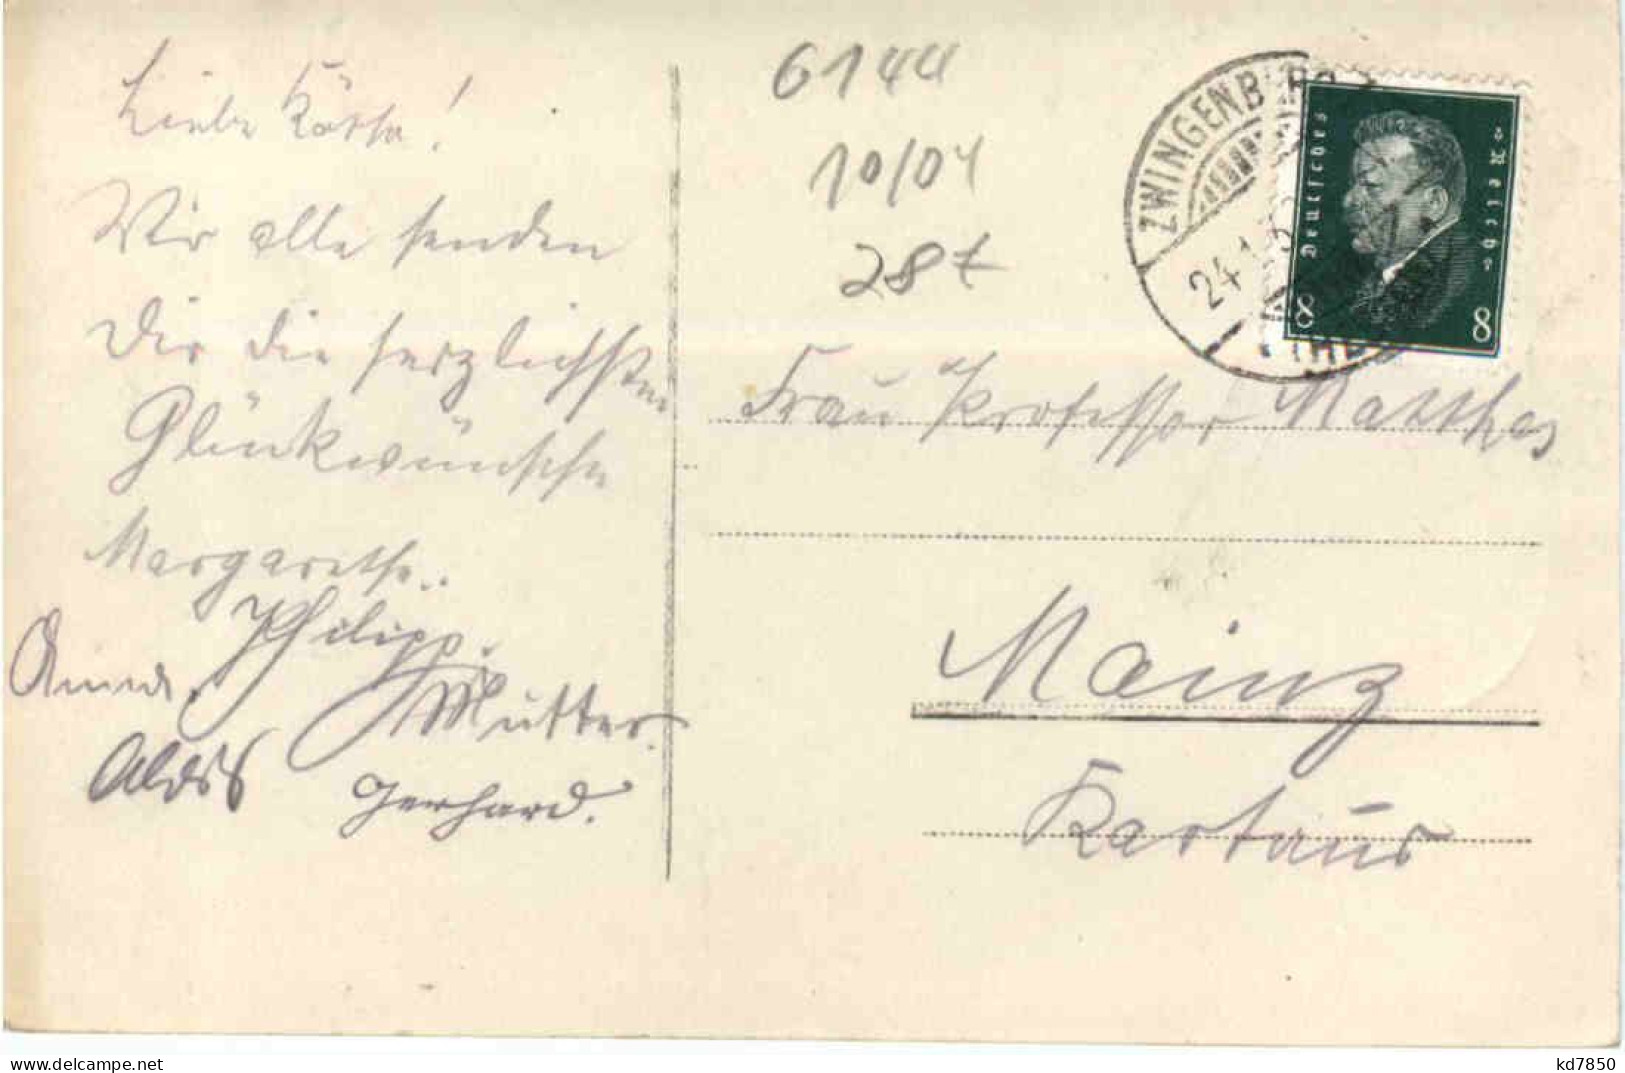 Liebe Käthe!
Wir alle senden
Dir die herzlichsten
Glückwünsche
Margarethe..
Philipp.
Anna.
Mutter.
Alois
Gerhard.
6144
10/04
28t
ZWINGENBURG
24.1.
Deutsches Reich
8 8
Frau Professor Matthes
Mainz
Kartaus
delcampe.net
kd7850